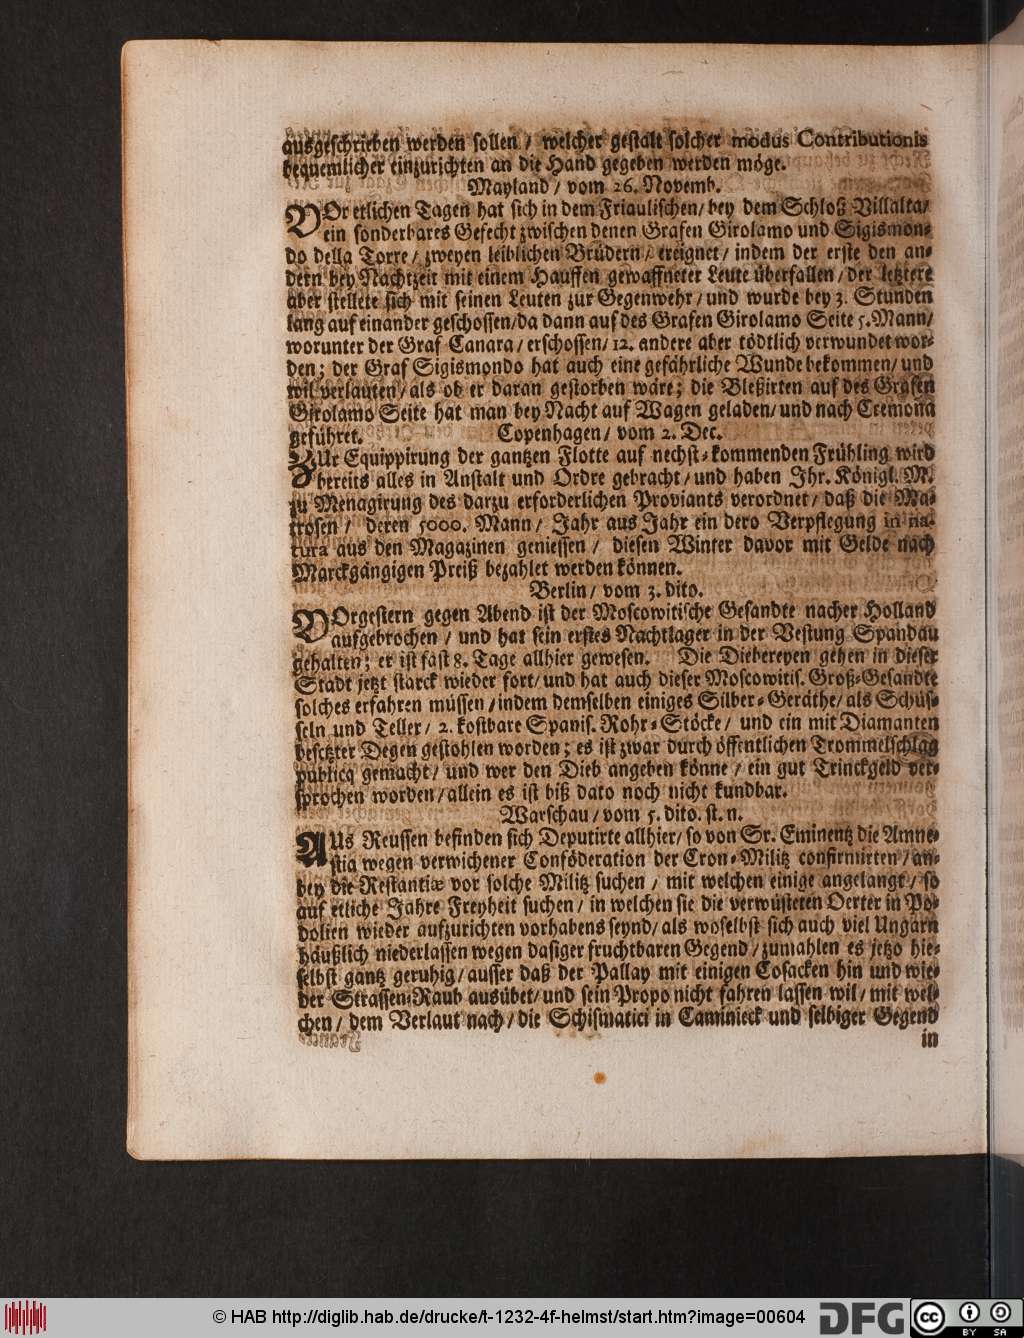 ausgeschrieben werden sollen / welcher gestalt solcher modus Contributionis
bequemlicher einzurichten an die Hand gegeben werden möge.
Mayland / vom 26. Novemb.
VOr etlichen Tagen hat sich in dem Friaulischen / bey dem Schloß Villalta /
ein sonderbares Gefecht zwischen denen Grafen Girolamo und Sigismon-
do della Torre / zweyen leiblichen Brüdern / ereignet / indem der erste den an-
dern bey Nachtzeit mit einem Hauffen gewaffneter Leute überfallen / der letztere
aber stellete sich mit seinen Leuten zur Gegenwehr / und wurde bey 3. Stunden
lang auf einander geschossen / da dann auf des Grafen Girolamo Seite 5. Mann /
worunter der Graf Canara / erschossen / 12. andere aber tödtlich verwundet wor-
den; der Graf Sigismondo hat auch eine gefährliche Wunde bekommen / und
wil verlauten / als ob er daran gestorben wäre; die Bleßirten auf des Grafen
Girolamo Seite hat man bey Nacht auf Wagen geladen / und nach Cremona
geführet. Copenhagen / vom 2. Dec.
ZUr Equippirung der gantzen Flotte auf nechst-kommenden Frühling wird
bereits alles in Anstalt und Ordre gebracht / und haben Ihr. Königl. M.
zu Menagirung des darzu erforderlichen Proviants verordnet / daß die Ma-
trosen / deren 5000. Mann / Jahr aus Jahr ein dero Verpflegung in na-
tura aus den Magazinen geniessen / diesen Winter davor mit Gelde nach
Marckgängigen Preiß bezahlet werden können.
Berlin / vom 3. dito.
VOrgestern gegen Abend ist der Moscowitische Gesandte nacher Holland
aufgebrochen / und hat sein erstes Nachtlager in der Vestung Spandau
gehalten; er ist fast 8. Tage allhier gewesen. Die Diebereyen gehen in dieser
Stadt jetzt starck wieder fort / und hat auch dieser Moscowitis. Groß-Gesandte
solches erfahren müssen / indem demselben einiges Silber-Geräthe / als Schüs-
seln und Teller / 2. kostbare Spanis. Rohr-Stöcke / und ein mit Diamanten
besetzter Degen gestohlen worden; es ist zwar durch öffentlichen Trommelschlag
publicq gemacht / und wer den Dieb angeben könne / ein gut Trinckgeld ver-
sprochen worden / allein es ist biß dato noch nicht kundbar.
Warschau / vom 5. dito. st. n.
AUs Reussen befinden sich Deputirte allhier / so von Sr. Eminentz die Amne-
stia wegen verwichener Confôderation der Cron-Militz confirmirten / an-
bey die Restantiæ vor solche Militz suchen / mit welchen einige angelangt / so
auf etliche Jahre Freyheit suchen / in welchen sie die verwüsteten Oerter in Po-
dolien wieder aufzurichten vorhabens seynd / als woselbst sich auch viel Ungarn
häußlich niederlassen wegen dasiger fruchtbaren Gegend / zumahlen es jetzo hie-
selbst gantz geruhig / ausser daß der Pallay mit einigen Cosacken hin und wie-
der Strassen-Raub ausübet / und sein Propo nicht fahren lassen wil / mit wel-
chen / dem Verlaut nach / die Schismatici in Caminieck und selbiger Gegend
in
© HAB http://diglib.hab.de/drucke/t-1232-4f-helmst/start.htm?image=00604
DFG
cc BY SA